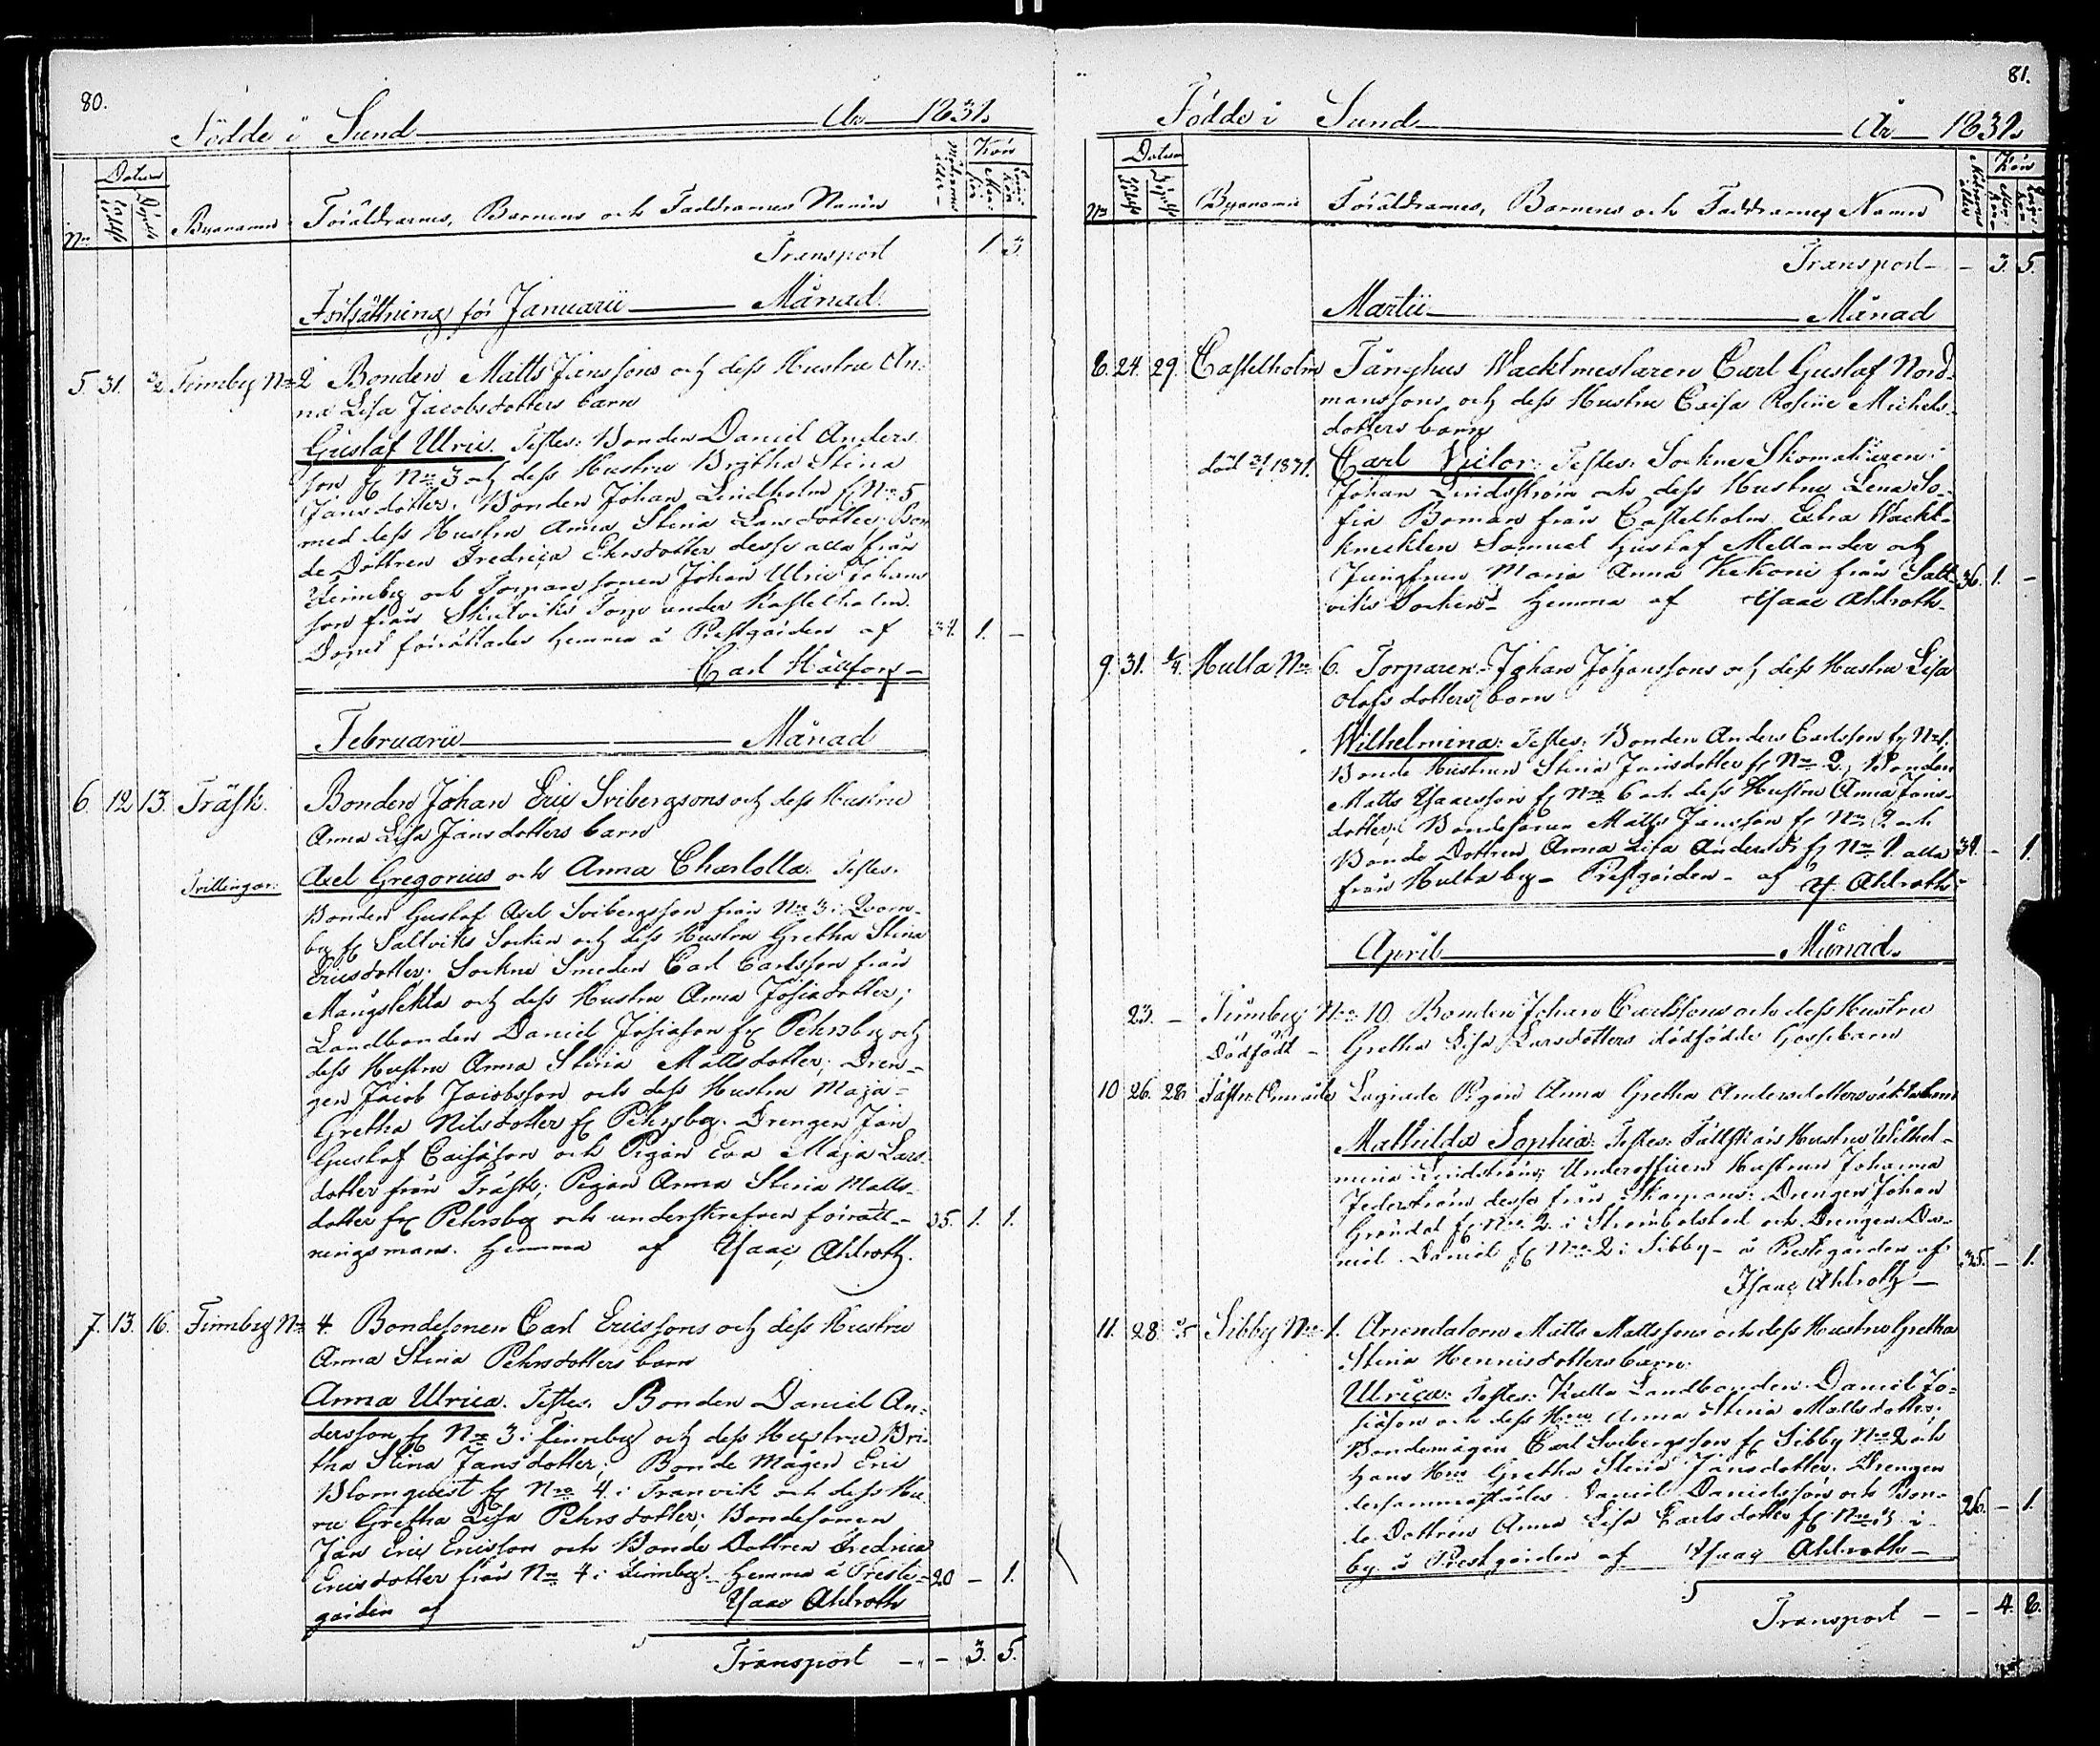 80.
Födde i Sund År 1831.
Nro
Datum
Födelse
Döpelse
Byanamn
Föräldrarnes, Barnens och Faddrarnes Namn
Mödrarnes ålder
Kön
Man-kön
Qvin-kön
Transport 1. 3.
Fortsättning för Januarii Månad.
5. 31. 2/2 Finnby Nro 2 Bonden Matts Jansons och dess Hustru An-
na Lisa Jacobsdotters barn
Gustaf Ulric. Testes: Bonden Daniel Anders-
son fr Nro 3 och dess Hustru Britha Stina
Jansdotter, Bonden Johan Lindholm fr Nro 5
med dess Hustru Anna Stina Larsdotter, Bon-
de Dottren Fredrica Ehrsdotter desse alla från
Finnby och Torpare sonen Johan Ulric Johans-
son från Skutviks Torp under Kastelholm.
Dopet förrättades hemma å Prestgården af 34. 1. –
Carl Hällfors –
Februarii Månad
6. 12 13. Träsk. Bonden Johan Eric Svibergsons och dess Hustru
Anna Lisa Jansdotters barn
Tvillingar: Axel Gregorius och Anna Charlotta. Testes.
Bonden Gustaf Axel Svibergsson från Nro 3 i Qvarn-
bo fr Saltviks Socken och dess Hustru Gretha Stina
Ericsdotter. Sockne Smeden Carl Carlsson från
Mångstekta och dess Hustru Anna Josiædotter;
Landbonden Daniel Josiason fr Pehrsby och
dess Hustru Anna Stina Mattsdotter; Dren-
gen Jacob Jacobsson och dess Hustru Maja-
Gretha Nilsdotter fr Pehrsby. Drengen Jan
Gustaf Caisason och Pigan Eva Maja Lars-
dotter från Träsk; Pigan Anna Stina Matts-
dotter fr Pehrsby och underskrefven förrätt- 35. 1. 1.
ningsman. Hemma af Isaac Ahlroth.
7. 13. 16. Finnby Nro 4. Bondesonen Carl Ericssons och dess Hustru
Anna Stina Pehrsdotters barn
Anna Ulrica. Testes. Bonden Daniel An-
dersson fr Nro 3 i Finnby och dess Hustru Bri-
tha Stina Jansdotter; Bonde Mågen Eric
Blomquist fr Nro 4 i Tranvik och dess Hu-
ru Gretha Lisa Pehrsdotter; Bondesonen
Jan Eric Ericsson och Bonde Dottren Fredrica
Ericsdotter från Nro 4 i Finnby. Hemma å Prest- 20 – 1.
gården af Isaac Ahlroth
Transport – – 3. 5.
81.
Födde i Sund År 1831.
Nro
Datum
Födelse
Döpelse
Byanamn
Föräldrarnes, Barnens och Faddrarnes Namn
Mödrarnes ålder
Kön
Man-kön
Qvin-kön
Transport – – 3. 5.
Martii Månad
8. 24. 29. Castelholm Fånghus Wacktmestaren Carl Gustaf Nord-
manssons och dess Hustru Caisa Rosina Michels-
dotters barn
död 1871. Carl Victor. Testes. Sockne Skomakaren
Johan Lindström och dess Hustru Lena So-
fia Boman från Castelholm Extra Wackt-
knechten Samuel Gustaf Mellander och
Jungfrun Maria Anna Kekoni från Salt- 36. 1. –
viks Socken – Hemma af Isaac Ahlroth –
9. 31. 4/4. Hulta Nro 6. Torparen Johan Johanssons och dess Hustru Lisa
Olofsdotters barn
Wilhelmina: Testes. Bonden Anders Carlsson fr Nro 1,
Bonde Hustrun Stina Jansdotter fr Nro 2, Bonden
Matts Isaacsson fr Nro 6 och dess Hustru Anna Jans-
dotter; Bondesonen Matts Jansson fr Nro 2 och
Bonde Dottren Anna Lisa Andersdr fr Nro 1. alla 34. – 1.
från Hulta by – Prestgården – af Is. Ahlroth –
April Månad.
23. – Finnby Nro 10. Bonden Johan Carlssons och dess Hustru
Dödfödt – Gretha Lisa Larsdotters dödfödda Gossebarn
10 26. 28 Lägrade Pigan Anna Gretha Andersdotters oäkta barn
Mathilda Sophia: Testes: Fältskärs Hustru Wilhel-
mina Lindström; Underofficers Hustrun Johanna
Federström desse från Skarpans: Drengen Johan
Gröndal fr Nro 2. i Strömbolstad och Drengen Da-
niel Daniel fr Nro 2 i Sibby – å Prestgården af 35. – 1.
Isaac Ahlroth –
11. 28. Sibby Nro 1. Arrendatorn Matts Mattssons och dess Hustru Gretha
Stina Hennisdotters barn.
Ulrica: Testes: Kulla Landbonden Daniel Jo-
siason och dess Hru Anna Stina Mattsdotter.
Bondemågen Carl Svibergsson fr Sibby Nro 2 och
hans Hru Gretha Stina Jansdotter. Drengen
dersammastädes Daniel Danielsson och Bon-
de Dottren Anna Lisa Carlsdotter fr Nro 3 i 26. – 1.
by å Prestgården af Isaac Ahlroth –
Transport – – 4. 8.